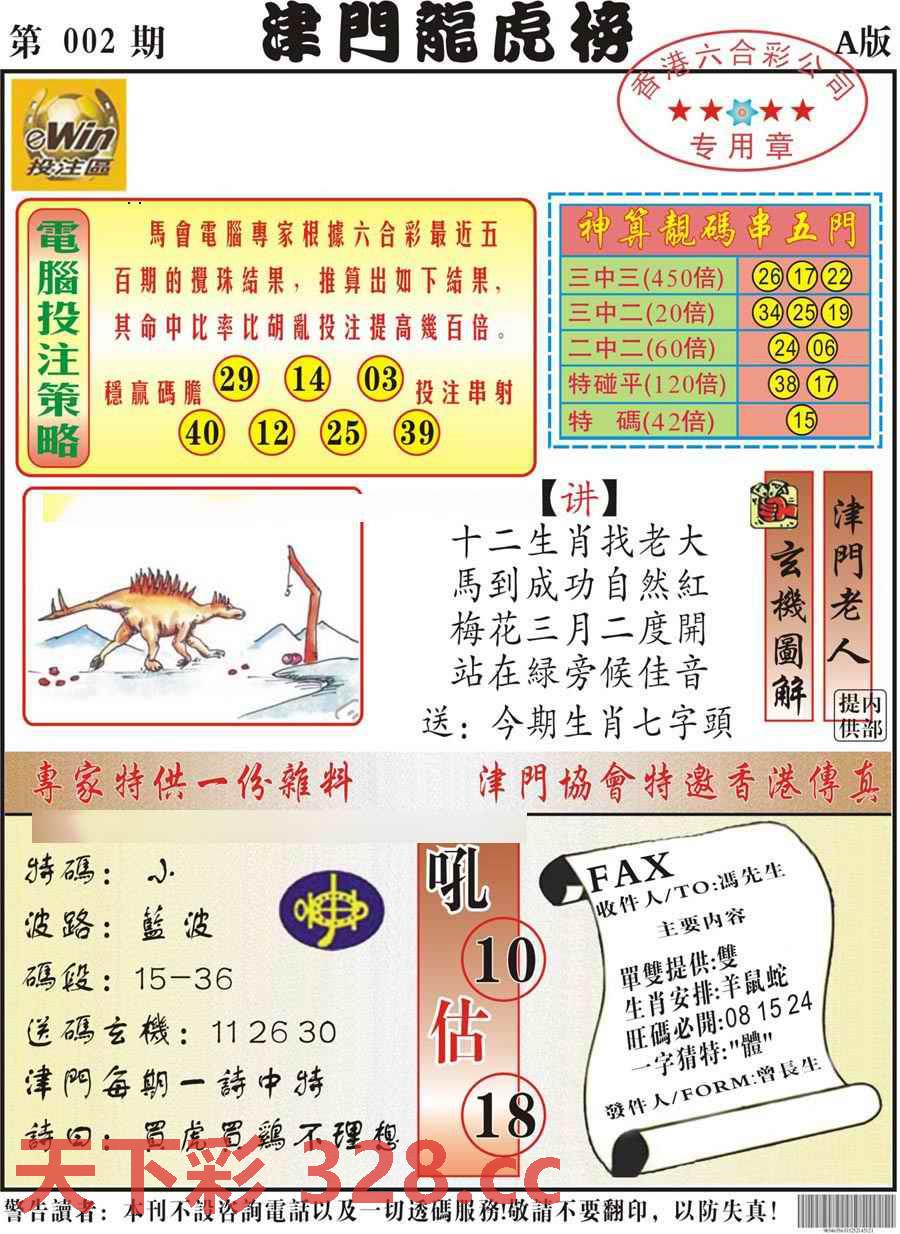 第 002 期
津門龍虎榜
A版
香港六合彩公司
专用章
eWin
投注區
電腦投注策略
馬會電腦專家根據六合彩最近五
百期的攪珠結果，推算出如下結果，
其命中比率比胡亂投注提高幾百倍。
穩贏碼膽 29 14 03 投注串射
40 12 25 39
神算靚碼串五門
三中三(450倍) 26 17 22
三中二(20倍) 34 25 19
二中二(60倍) 24 06
特碰平(120倍) 38 17
特 碼(42倍) 15
【讲】
十二生肖找老大
馬到成功自然紅
梅花三月二度開
站在緑旁候佳音
送：今期生肖七字頭
玄機圖解
津門老人
内部提供
專家特供一份雜料
津門協會特邀香港傳真
特碼：小
波路：藍波
碼段：15-36
送碼玄機：11 26 30
津門每期一詩中特
詩曰：買虎買鷄不理想
吼
10
估
18
FAX
收件人/TO:馮先生
主要内容
單雙提供:雙
生肖安排:羊鼠蛇
旺碼必開:08 15 24
一字猜特:"體"
發件人/FORM:曾長生
天下彩 328.cc
警告讀者：本刊不設咨詢電話以及一切透碼服務!敬請不要翻印，以防失真!